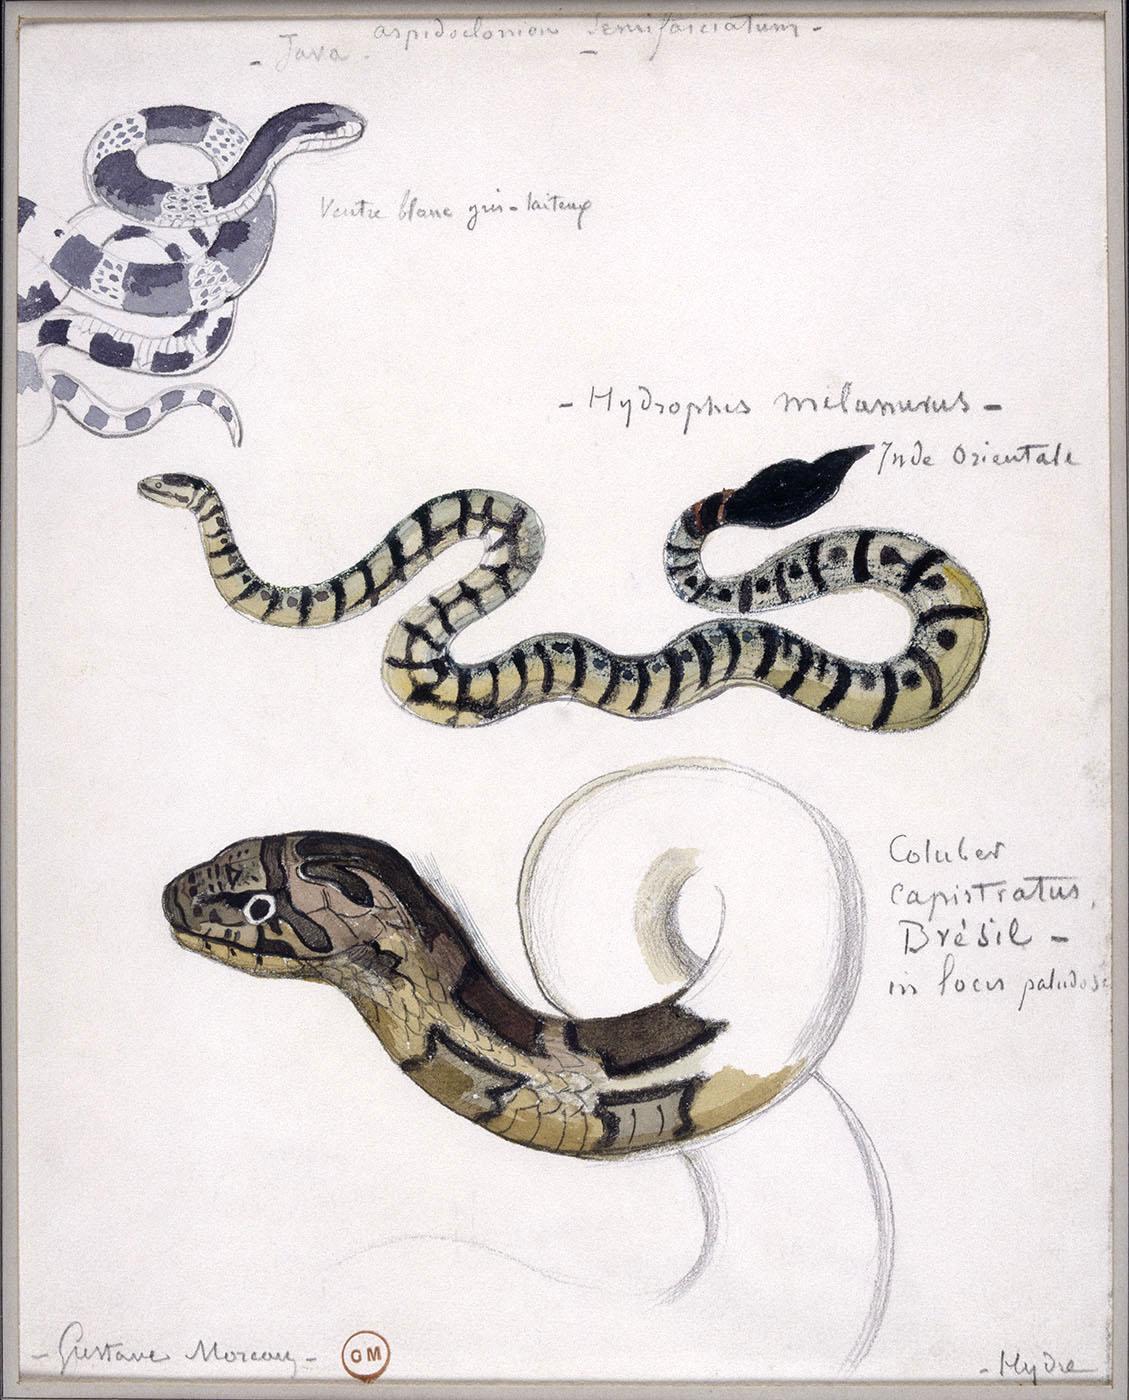 aspidoclonion Semifasciatum -
- Java -
Ventre blanc gris-laiteux
- Hydrophis mélanurus -
Inde Orientale
Coluber
capistratus,
Brésil -
in locis paludosis
- Gustave Moreau -
GM
- Hydre